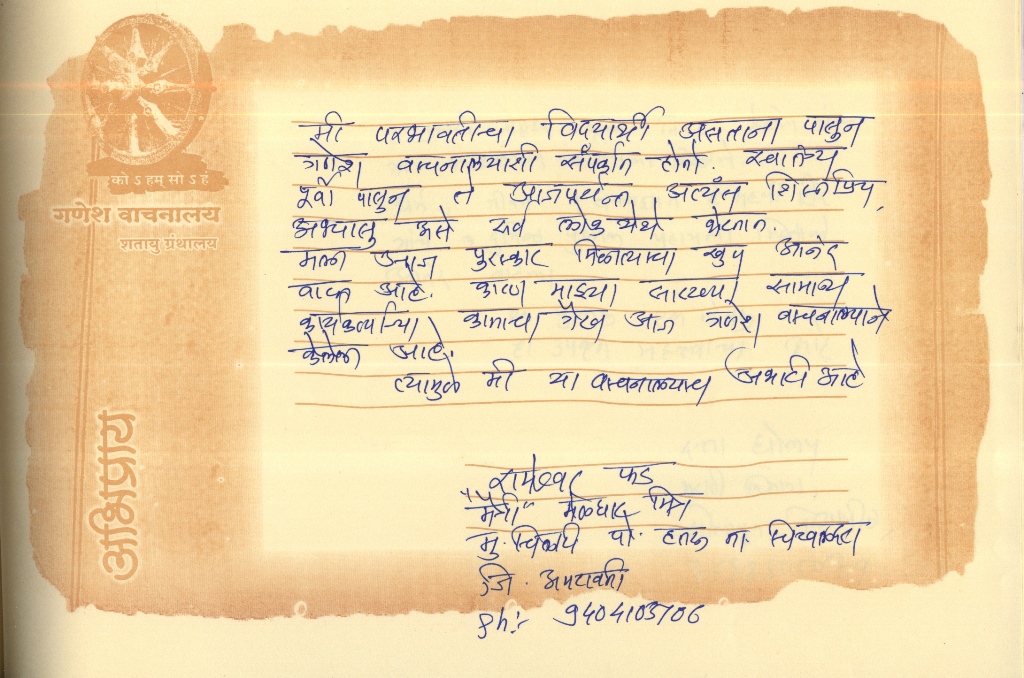 को ऽ हम् सो ऽ हं
गणेश वाचनालय
शतायु ग्रंथालय
अभिप्राय
मी परभावतीचा विद्यार्थी असताना पासुन
गणेश वाचनालयाशी संपर्कात होतो. स्वातंत्र्य
पूर्वी पासुन ते आजपर्यन्त अत्यंत शिस्तप्रिय,
अभ्यासु असे सर्व लोक येथे येतात.
मला आज पुरस्कार मिळाल्याचा खुप आनंद
वाटत आहे. कारण माझ्या सारख्या सामान्य
कार्यकर्त्याच्या कामाचा गौरव आज गणेश वाचनालयाने
केलेला आहे.
त्यामुळे मी या वाचनालयाचा आभारी आहे
रामेश्वर फड
"मैत्री" मेळघाट मित्र
मु. चिलाटी पो. हतरू ता. चिखलदरा
जि. अमरावती
Ph:- 9404103706